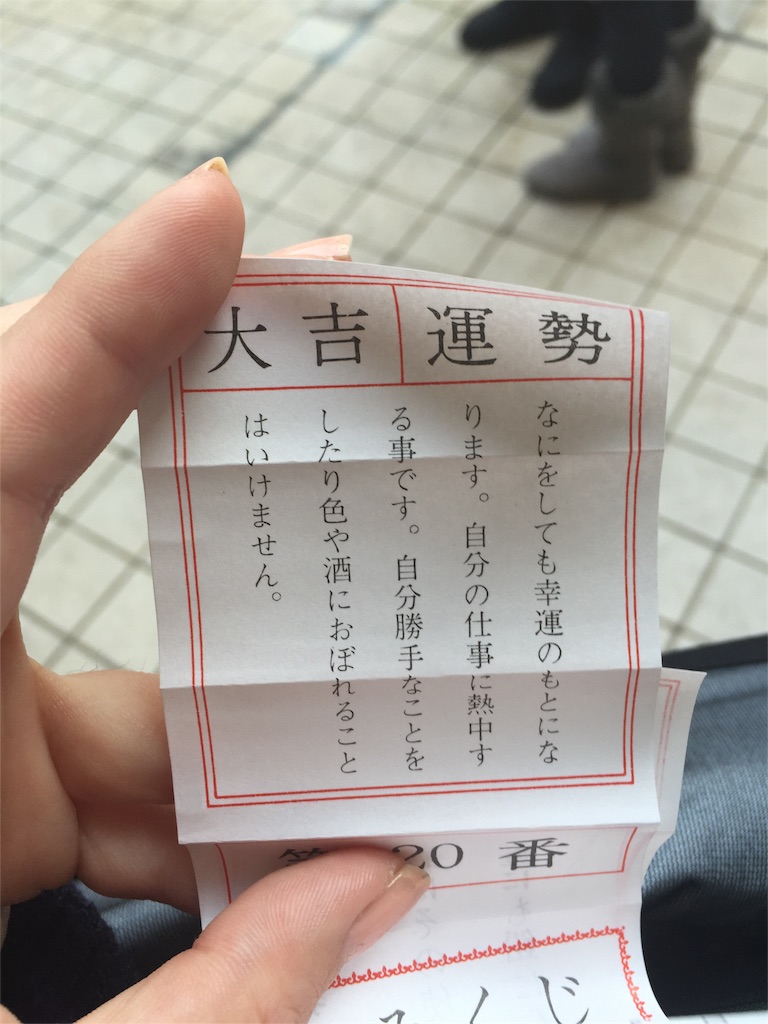 大吉 運勢
なにをしても幸運のもとにな
ります。自分の仕事に熱中す
る事です。自分勝手なことを
したり色や酒におぼれること
はいけません。
20番
くじ